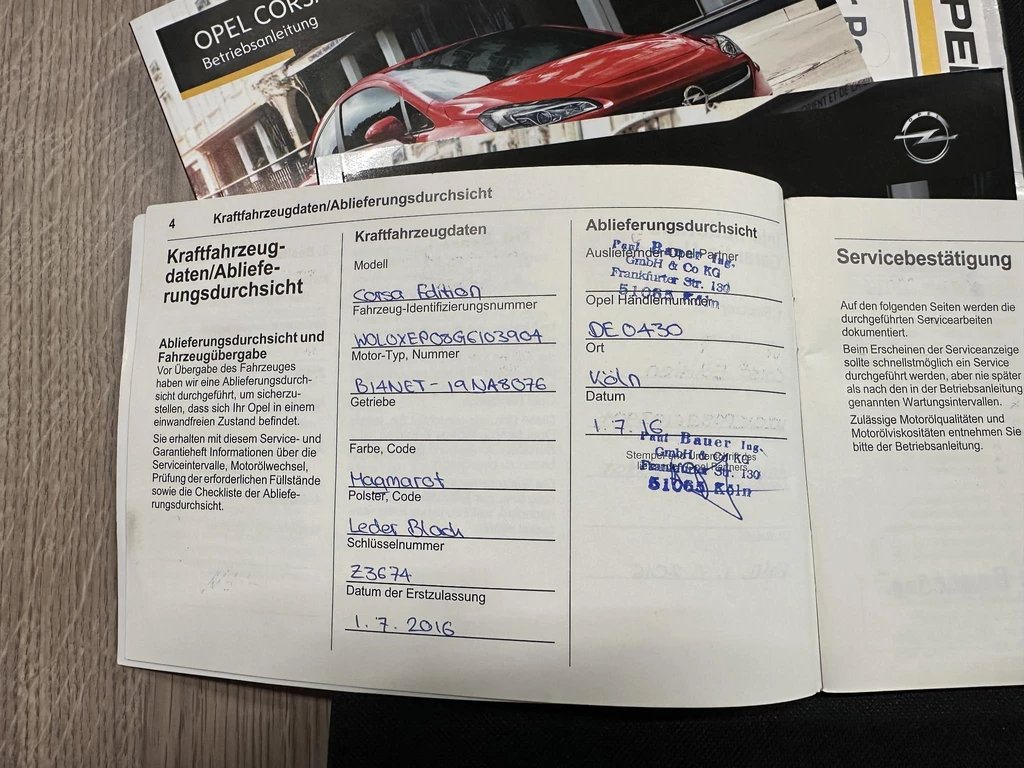 OPEL CORSA
Betriebsanleitung
OPEL
4 Kraftfahrzeugdaten/Ablieferungsdurchsicht
Kraftfahrzeug-
daten/Abliefe-
rungsdurchsicht
Ablieferungsdurchsicht und
Fahrzeugübergabe
Vor Übergabe des Fahrzeuges
haben wir eine Ablieferungsdurch-
sicht durchgeführt, um sicherzu-
stellen, dass sich Ihr Opel in einem
einwandfreien Zustand befindet.
Sie erhalten mit diesem Service- und
Garantieheft Informationen über die
Serviceintervalle, Motorölwechsel,
Prüfung der erforderlichen Füllstände
sowie die Checkliste der Abliefe-
rungsdurchsicht.
Kraftfahrzeugdaten
Modell
Corsa Edition
Fahrzeug-Identifizierungsnummer
W0L0XEP08G6103904
Motor-Typ, Nummer
B14NET-19NA8076
Getriebe
Farbe, Code
Magmarot
Polster, Code
Leder Black
Schlüsselnummer
Z3674
Datum der Erstzulassung
1.7.2016
Ablieferungsdurchsicht
Ausliefernder Opel Partner
Paul Bauer Ing.
GmbH & Co KG
Frankfurter Str. 130
51065 Köln
Opel Händlernummer
DE0430
Ort
Köln
Datum
1.7.16
Paul Bauer Ing.
GmbH & Co KG
Frankfurter Str. 130
51065 Köln
Servicebestätigung
Auf den folgenden Seiten werden die
durchgeführten Servicearbeiten
dokumentiert.
Beim Erscheinen der Serviceanzeige
sollte schnellstmöglich ein Service
durchgeführt werden, aber nie später
als nach den in der Betriebsanleitung
genannten Wartungsintervallen.
Zulässige Motorölqualitäten und
Motorölviskositäten entnehmen Sie
bitte der Betriebsanleitung.